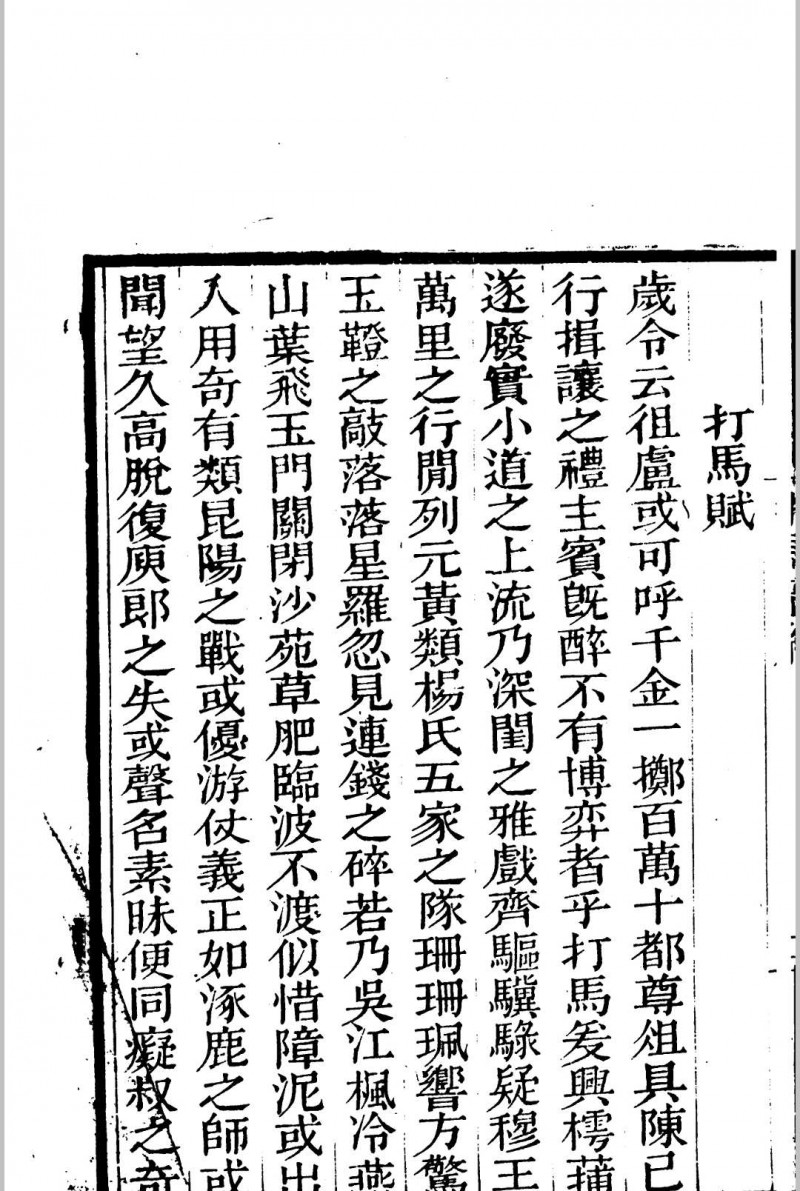 打馬賦
歲令云徂盧或可呼千金一擲百萬十都尊俎具陳已
行揖讓之禮主賓旣醉不有博弈者乎打馬爰興樗蒱
遂廢實小道之上流乃深閨之雅戲齊驅驥騄疑穆王
萬里之行閒列元黃類楊氏五家之隊珊珊珮響方驚
玉鐙之敲落落星羅忽見連錢之碎若乃吳江楓冷燕
山葉飛玉門關閉沙苑草肥臨波不渡似惜障泥或出
入用奇有類昆陽之戰或優游仗義正如涿鹿之師或
聞望久高脫復庾郎之失或聲名素昧便同癡叔之奇